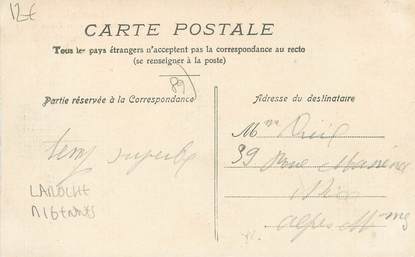 12€
CARTE POSTALE
Tous les pays étrangers n'acceptent pas la correspondance au recto
(se renseigner à la poste)
89
Partie réservée à la Correspondance
Adresse du destinataire
temps superbe
LAROCHE
MIGENNES
Mme
39 Rue
Nice
Alpes Mmes